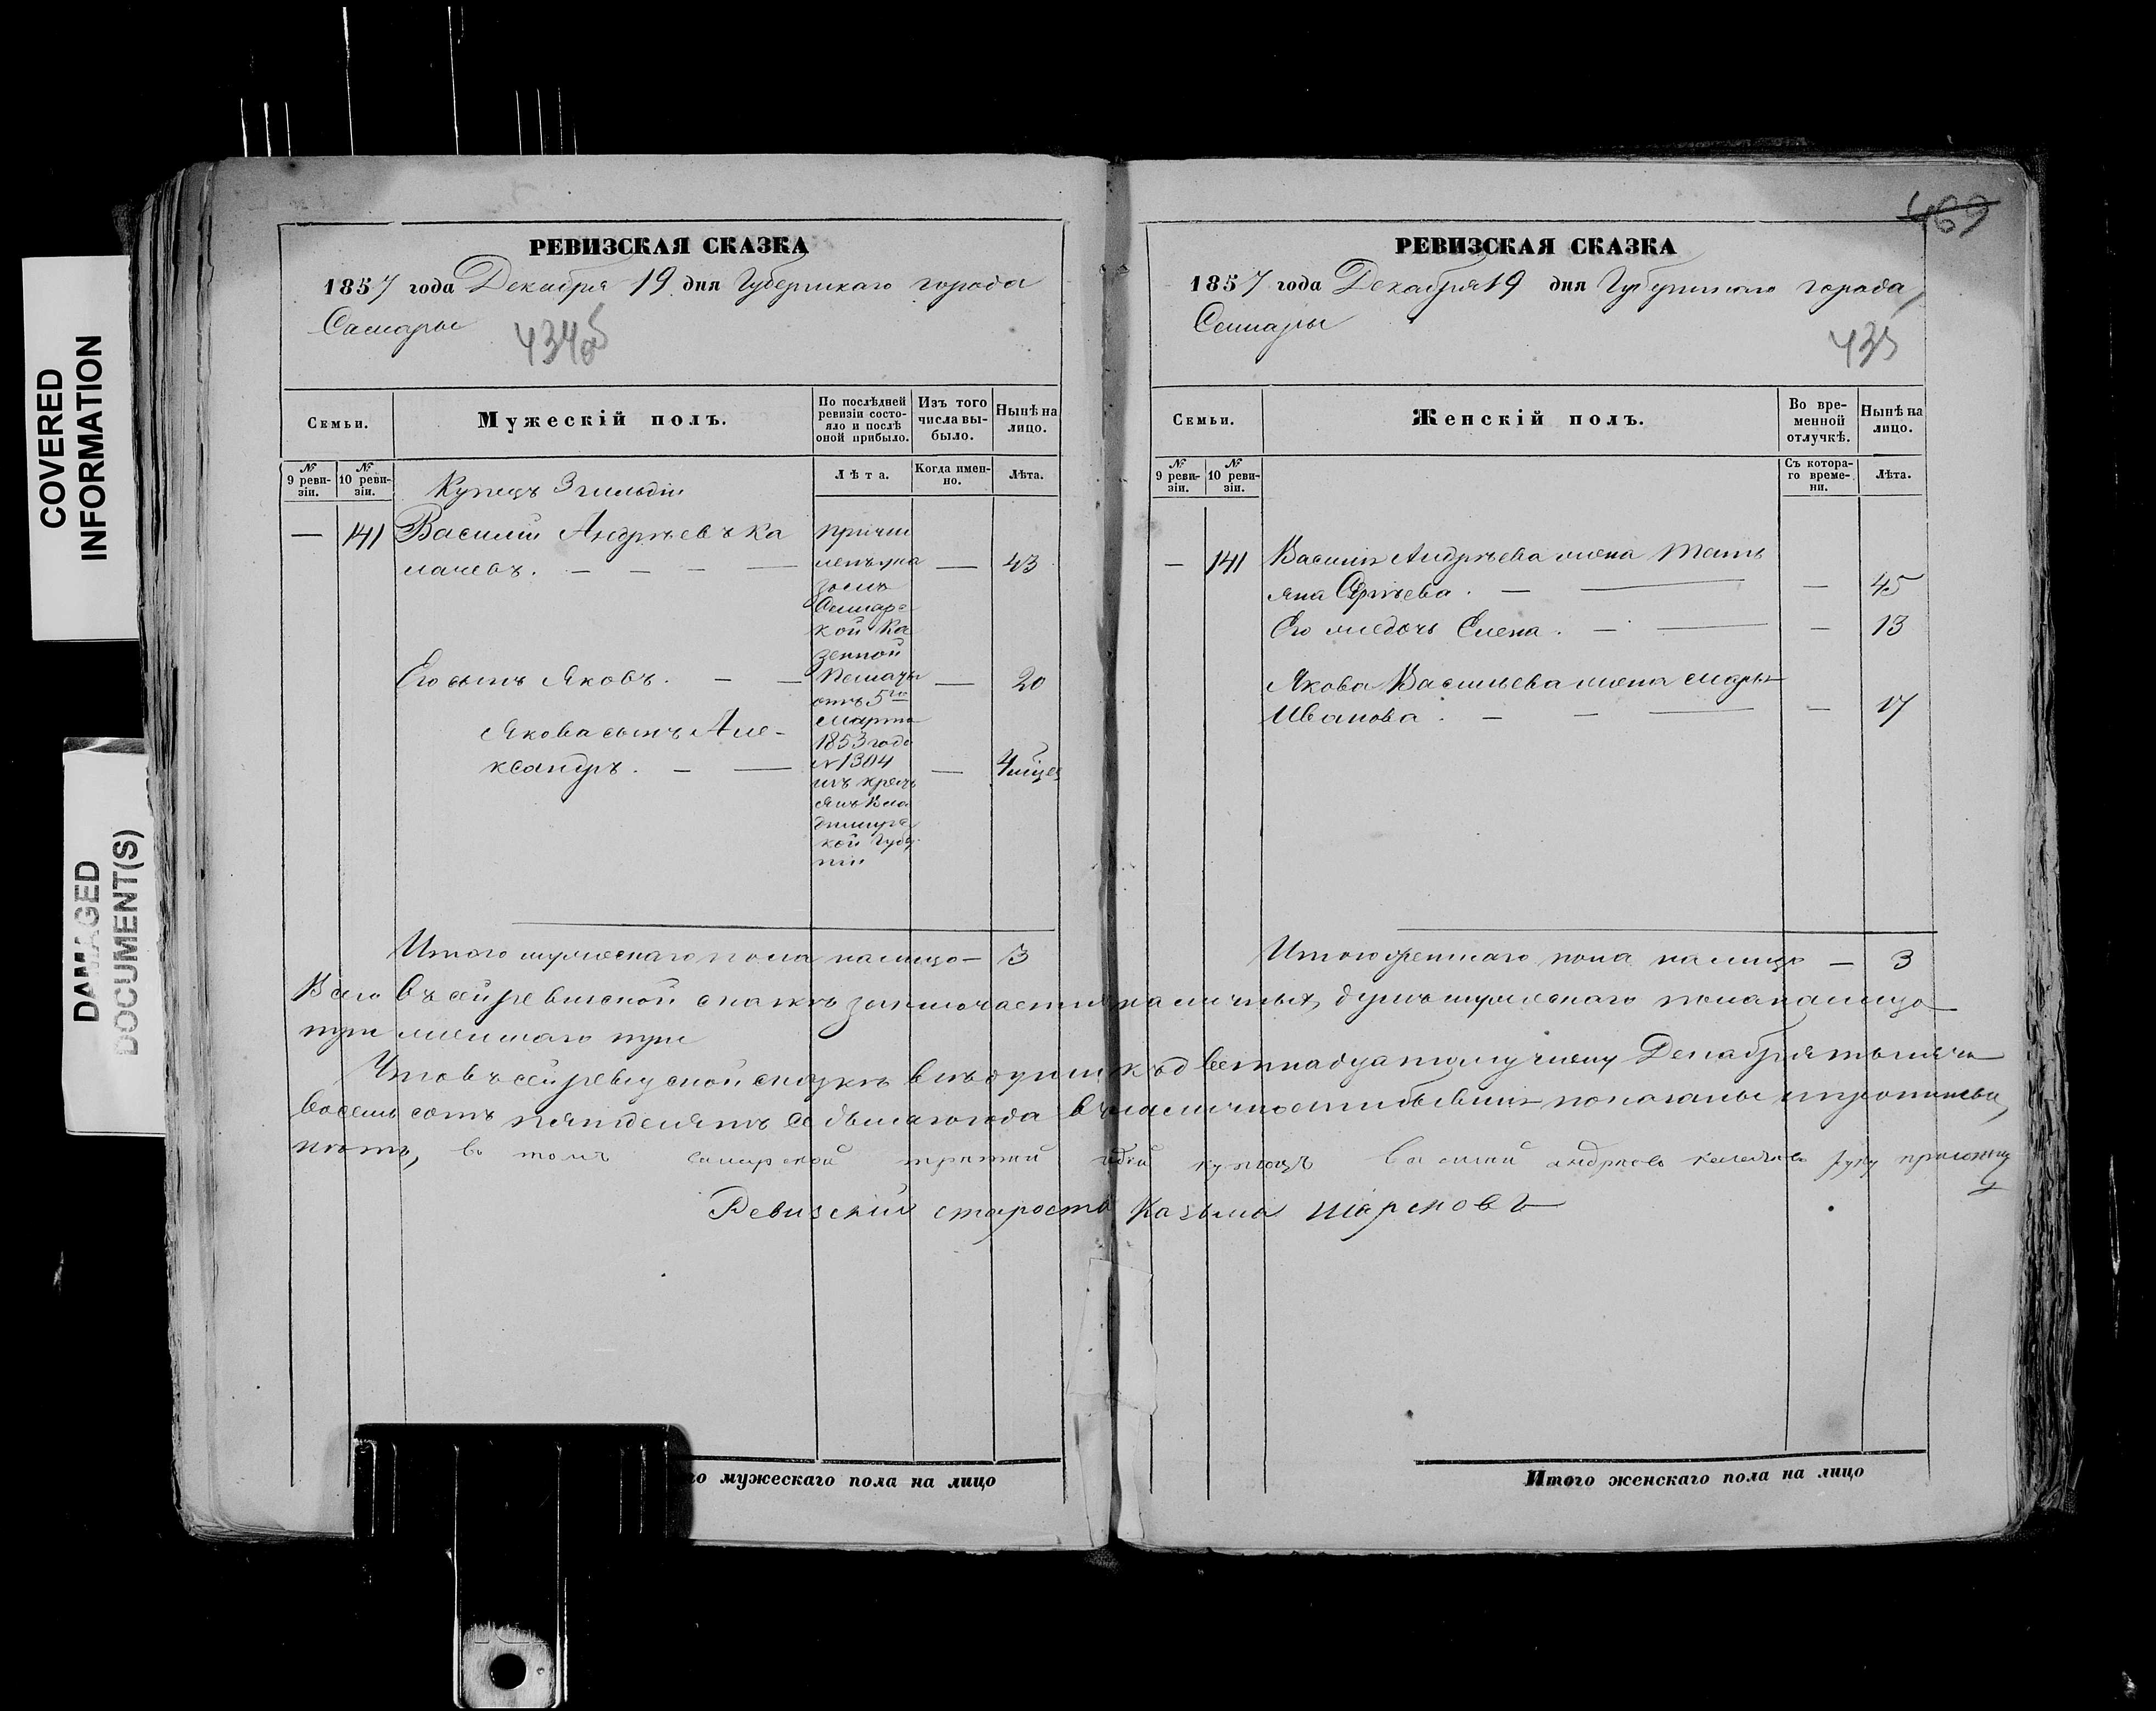 COVERED
INFORMATION
DAMAGED
DOCUMENT(S)
РЕВИЗСКАЯ СКАЗКА
1857 года Декабря 19 дня Губернскаго города
Самары
434об
Семьи.
Мужескій полъ.
По послѣдней
ревизіи состо-
яло и послѣ
оной прибыло.
Изъ того
числа вы-
было.
Нынѣ на
лицо.
№
9 реви-
зіи.
№
10 реви-
зіи.
Лѣта.
Когда имен-
но.
Лѣта.
Купецъ 3 гильдіи
— 141 Василій Андрѣевъ Ка
лачевъ. — — — — — 43
причи
сленъ ука
зомъ
Самарс
кой Ка
зенной
Палаты
отъ 5го
марта
1853 года
№ 1304
изъ кресть
янъ Вла
димирс
кой Губер
ніи
Его сынъ Яковъ. — — — 20
Якова сынъ Але-
ксандръ. — — — 4 мѣсяц
Итого мужескаго пола на лицо — 3
го мужескаго пола на лицо
469
РЕВИЗСКАЯ СКАЗКА
1857 года Декабря 19 дня Губернскаго города
Самары
435
Семьи.
Женскій полъ.
Во вре-
менной
отлучкѣ.
Нынѣ на
лицо.
№
9 реви-
зіи.
№
10 реви-
зіи.
Съ котора-
го време-
ни.
Лѣта.
— 141 Василія Андрѣева жена Тать
яна Сергѣева. — — — 45
Его же дочь Елена. — — — 13
Якова Васильева жена Марья
Иванова. — — — — 17
Итого женскаго пола на лицо — 3
Всего въ сей ревизской сказкѣ заключается наличныхъ душъ мужескаго пола на лицо
три женскаго три
Что въ сей ревизской сказкѣ всѣ души къ девятнадцатому числу Декабря тысяча
восемь сотъ пятдесятъ седьмаго года въ наличности бывшія показаны и прописныхъ
нѣтъ, въ томъ самарской третей купецъ василий андреевъ калачевъ руку приложилъ
Ревизский староста Казьма Шарсковъ
Итого женскаго пола на лицо